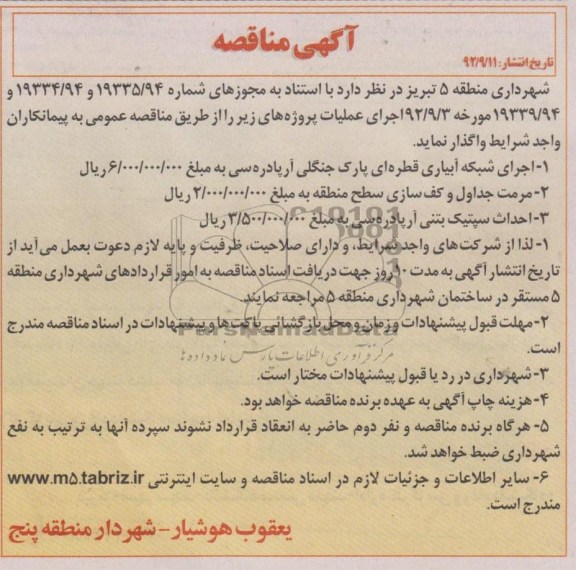 آگهی مناقصه
تاریخ انتشار: ۹۲/۹/۱۱
شهرداری منطقه ۵ تبریز در نظر دارد با استناد به مجوزهای شماره ۱۹۳۳۵/۹۴ و ۱۹۳۳۴/۹۴ و
۱۹۳۳۹/۹۴ مورخه ۹۲/۹/۳ اجرای عملیات پروژه‌های زیر را از طریق مناقصه عمومی به پیمانکاران
واجد شرایط واگذار نماید.
۱- اجرای شبکه آبیاری قطره‌ای پارک جنگلی آرپادره‌سی به مبلغ ۶/۰۰۰/۰۰۰/۰۰۰ ریال
۲- مرمت جداول و کف سازی سطح منطقه به مبلغ ۲/۰۰۰/۰۰۰/۰۰۰ ریال
۳- احداث سپتیک بتنی آرپادره‌سی به مبلغ ۳/۵۰۰/۰۰۰/۰۰۰ ریال
۱- لذا از شرکت‌های واجد شرایط، و دارای صلاحیت، ظرفیت و پایه لازم دعوت بعمل می‌آید از
تاریخ انتشار آگهی به مدت ۱۰ روز جهت دریافت اسناد مناقصه به امور قراردادهای شهرداری منطقه
۵ مستقر در ساختمان شهرداری منطقه ۵ مراجعه نمایند.
۲- مهلت قبول پیشنهادات و زمان و محل بازگشائی پاکت‌ها و پیشنهادات در اسناد مناقصه مندرج
است.
ParsNamadData
مرکز فرآوری اطلاعات پارس نماد داده‌ها
۳- شهرداری در رد یا قبول پیشنهادات مختار است.
۴- هزینه چاپ آگهی به عهده برنده مناقصه خواهد بود.
۵- هرگاه برنده مناقصه و نفر دوم حاضر به انعقاد قرارداد نشوند سپرده آنها به ترتیب به نفع
شهرداری ضبط خواهد شد.
۶- سایر اطلاعات و جزئیات لازم در اسناد مناقصه و سایت اینترنتی www.m۵.tabriz.ir
مندرج است.
یعقوب هوشیار - شهردار منطقه پنج